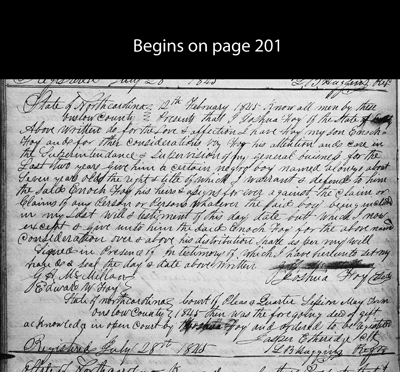 Begins on page 201
Registered July 28th 1845
State of Northcarolina 12th February 1845 Know all men by these
Onslow County Presents that I Joshua Foy of the State of
Above Written do for the Love & affection I have for my son Enoch
Foy and for other Considerations By Foy his attention and care in
the Superintendance & Supervision of my general buisness for the
Last two years give him a certain negro boy named alonzo about
Seven years old the right & title of which I warrant & defend to him
the said Enoch Foy his heirs & asigns for ever against the claim or
claims of any person or persons whatever the said boy being
in my Last Will & testament of this day date but which I now
except & give unto him the said Enoch Foy for the above named
consideration over & above his distribution share as per my will
Signed in Presents of In testimony of which I have hereunto set my
hand & seal the day & date above written
G. H. McMillan Joshua Foy (Seal)
Edward W. Foy
State of Northcarolina Court of Pleas & Quarter Session May Term
Onslow County 1845 then was the foregoing deed of gift
acknowledg in open court by Joshua Foy and ordered to be registered
Jasper Etheredge Clk
Registered July 28th 1845 L B Huggins Regtr